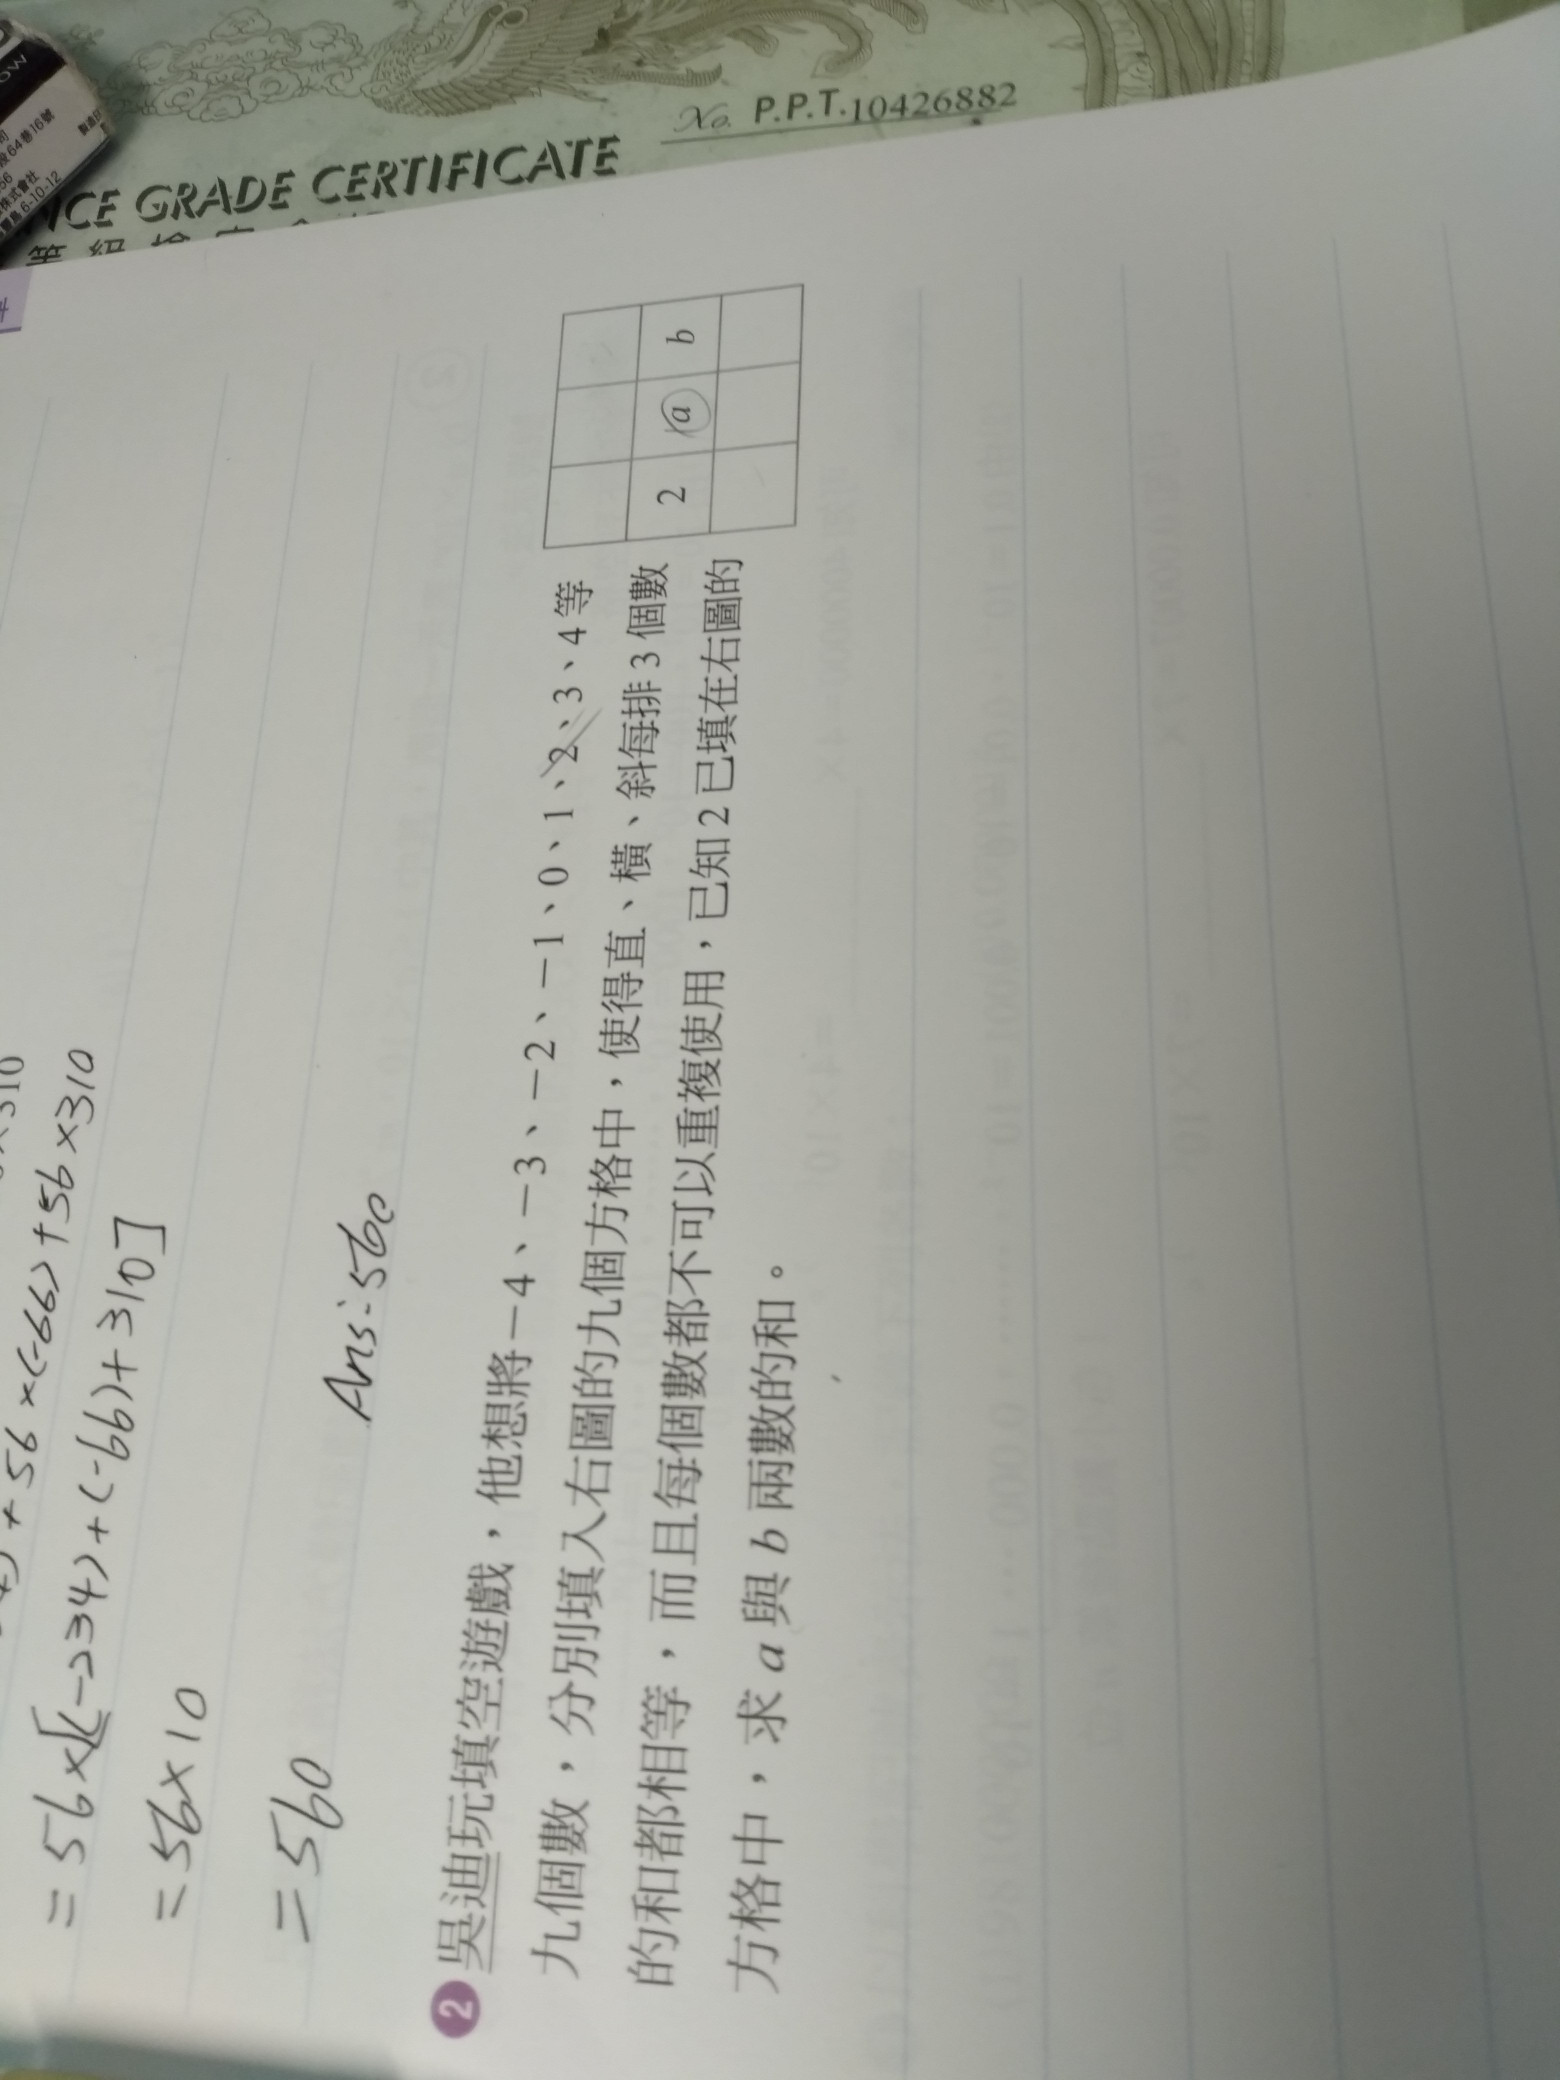 No. P.P.T.10426882
GRADE CERTIFICATE
64巷16號
株式會社
6-10-12
+56×(-66)+56×310
=56×[(-234)+(-66)+310]
=56×10
=560
Ans:560
2 吳迪玩填空遊戲，他想將－4、－3、－2、－1、0、1、2、3、4等
九個數，分別填入右圖的九個方格中，使得直、橫、斜每排3個數
的和都相等，而且每個數都不可以重複使用，已知2已填在右圖的
方格中，求a與b兩數的和。
2 a b